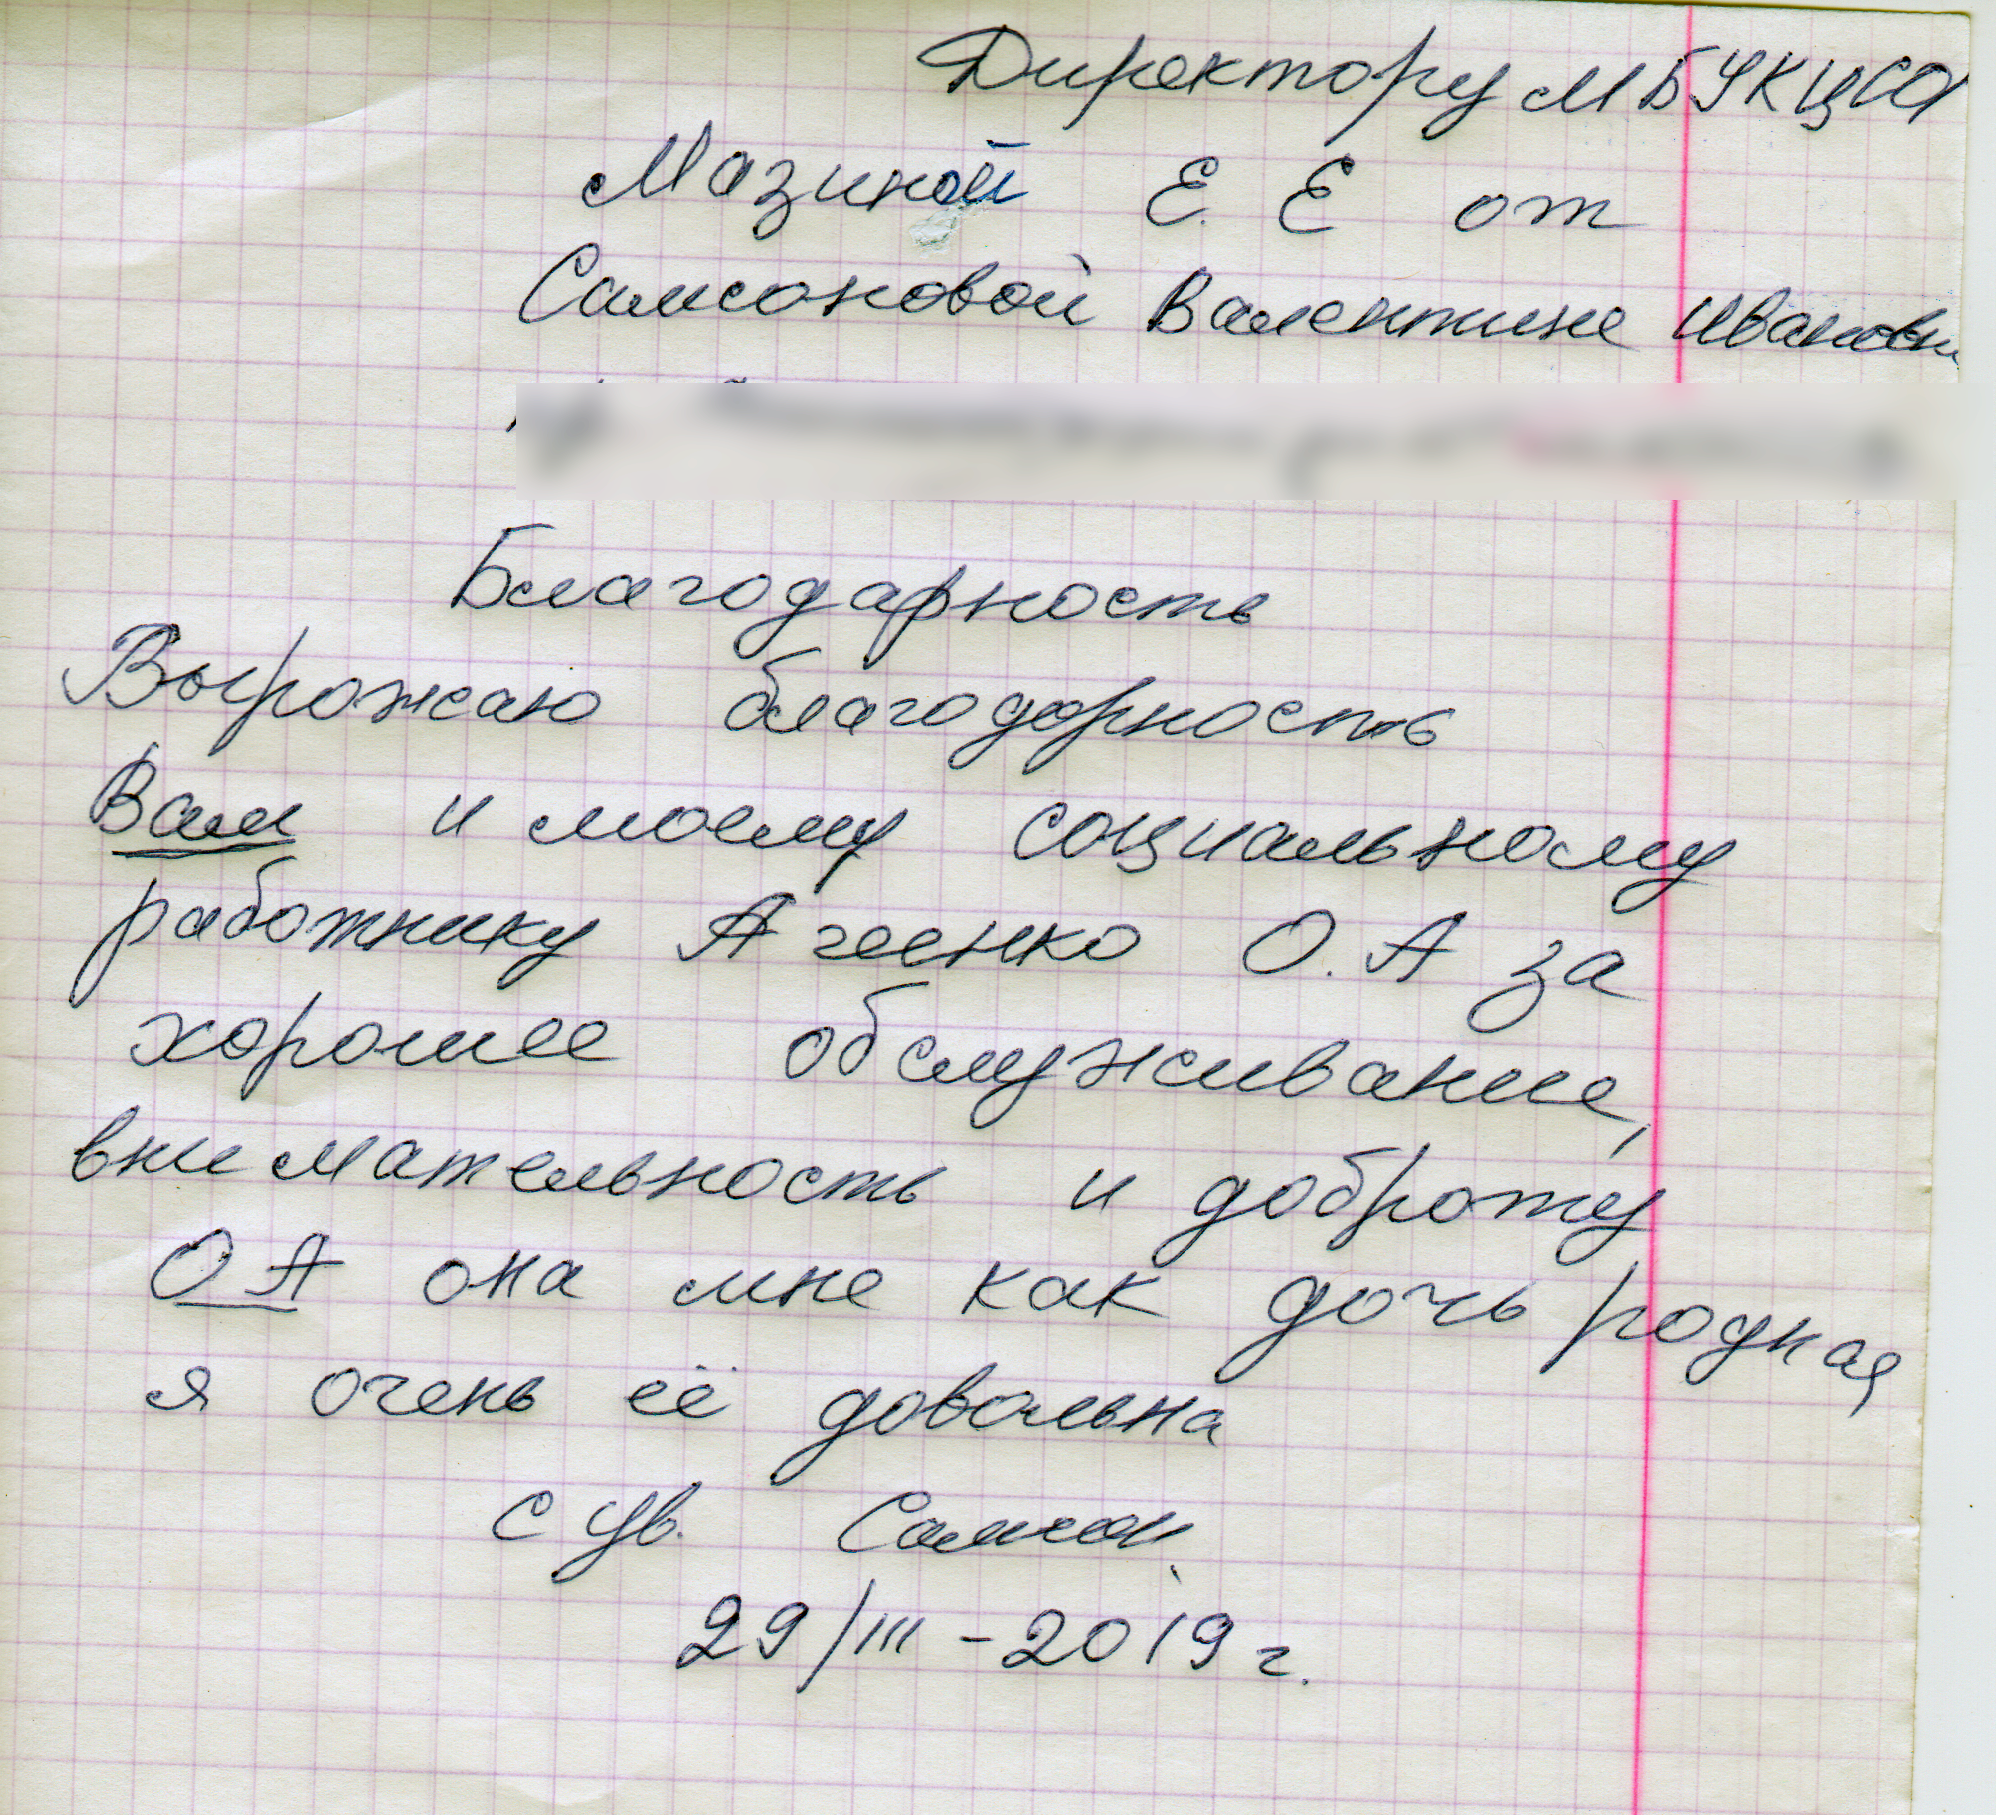 Директору МБУКЦСО
Мазиной Е. Е от
Самсоновой Валентине Ивановн
Благодарность
Вырожаю благодорность
Вам и моему социальному
работнику Агеенко О.А за
хорошее обслуживание,
внимательность и доброту
О А она мне как дочь родная
я очень её довольна
с ув. Самсон
29/III-2019г.